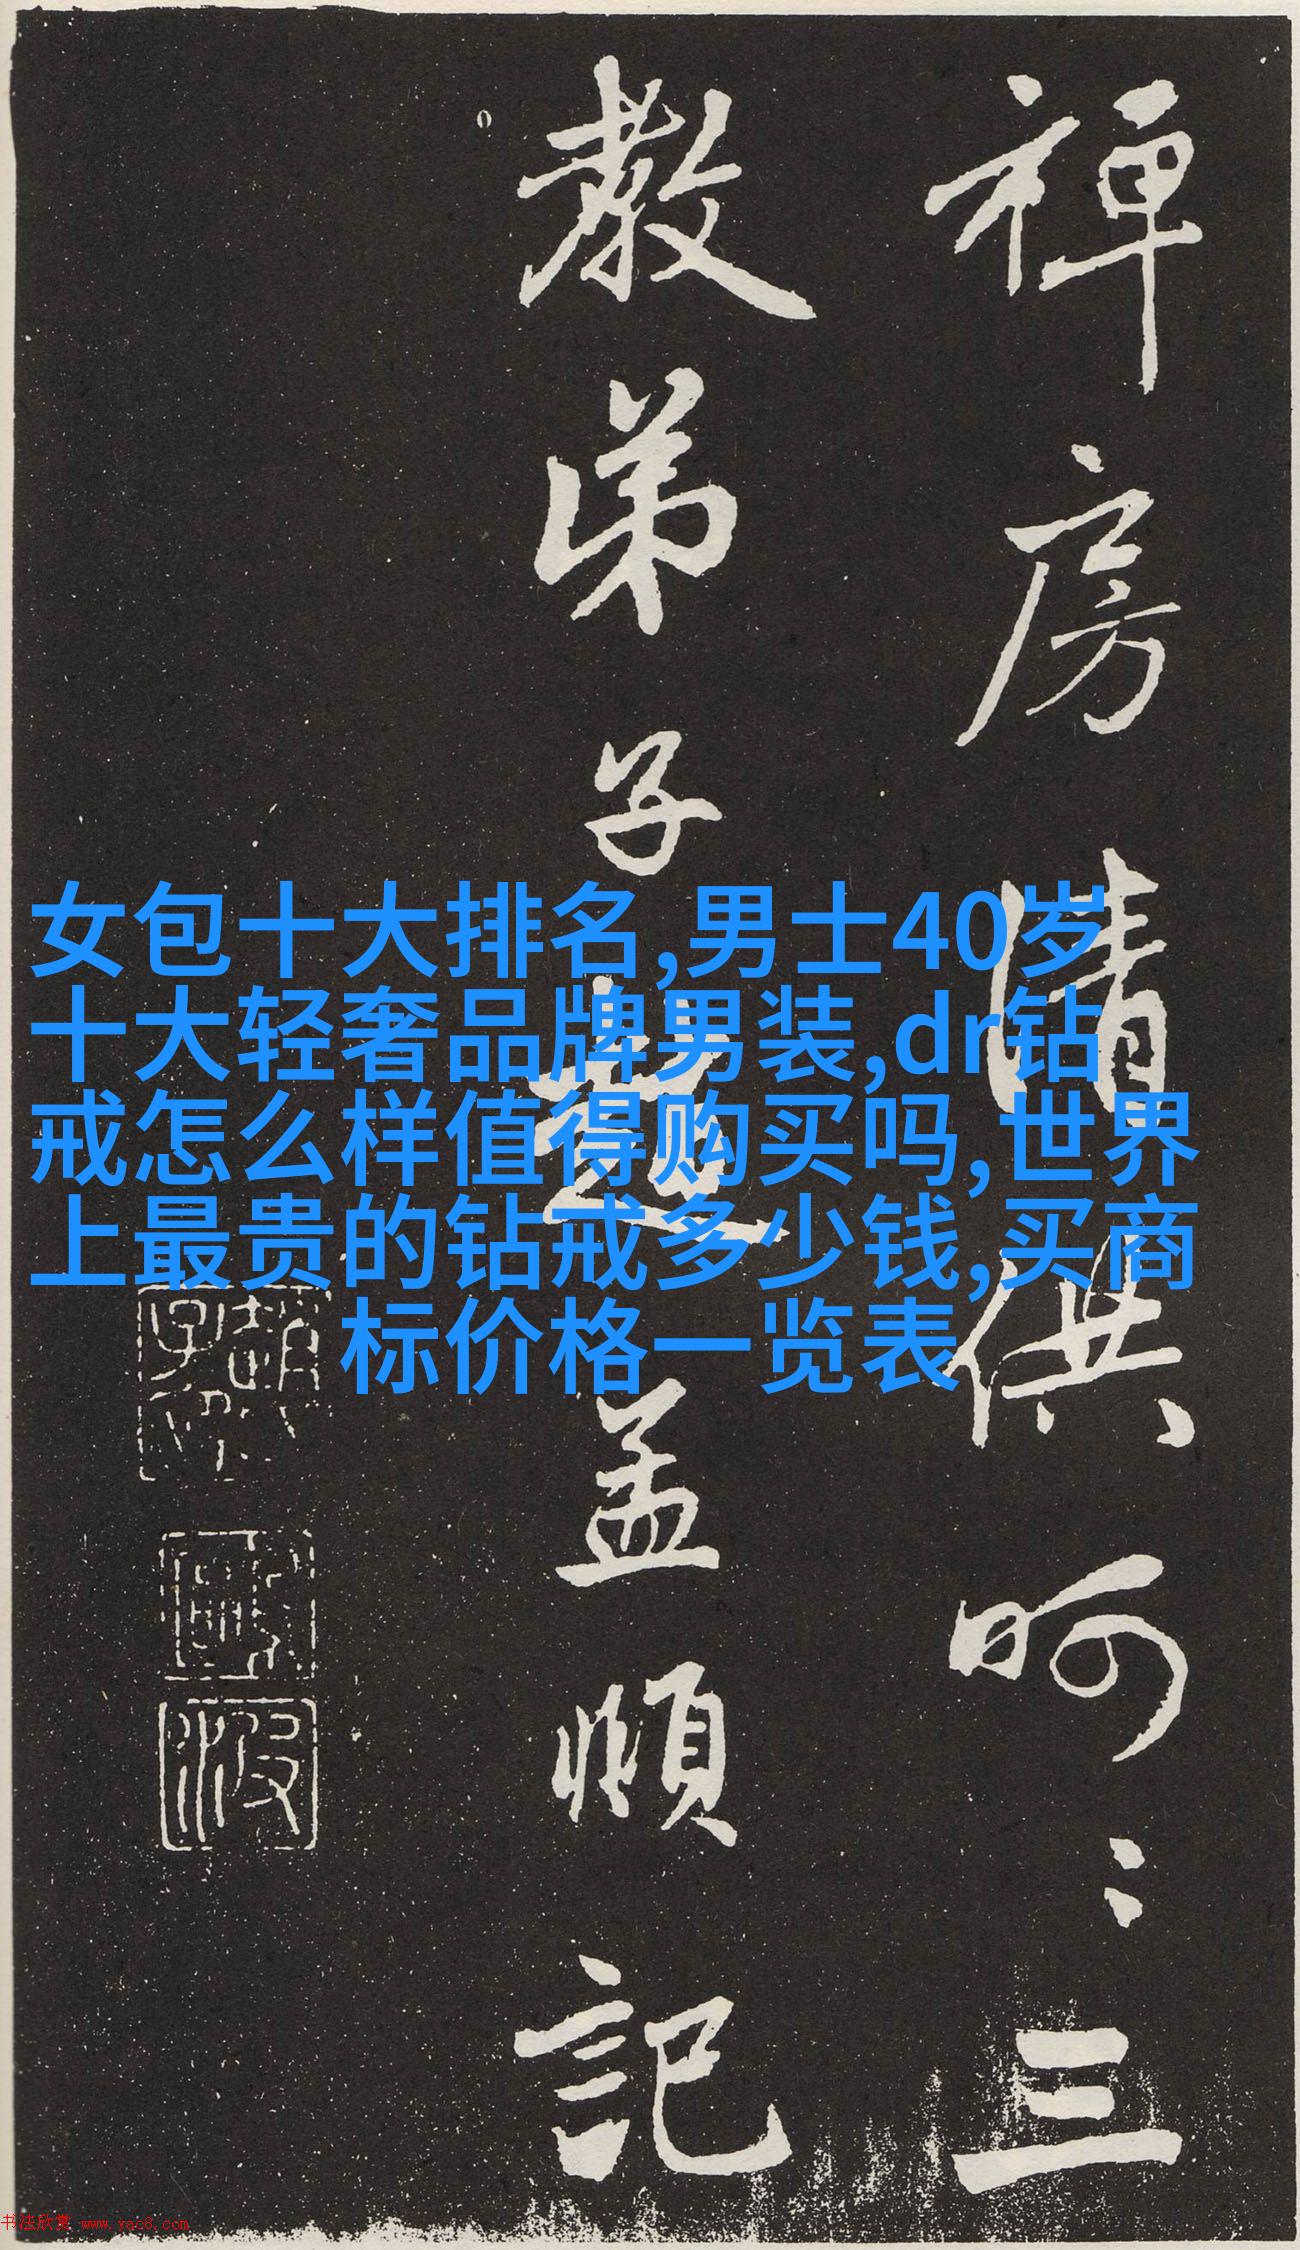 禅房清供呵〻三
教弟子趙孟頫記
女包十大排名,男士40岁
十大轻奢品牌男装,dr钻
戒怎么样值得购买吗,世界
上最贵的钻戒多少钱,买商
标价格一览表
书法欣赏 www.yac8.com